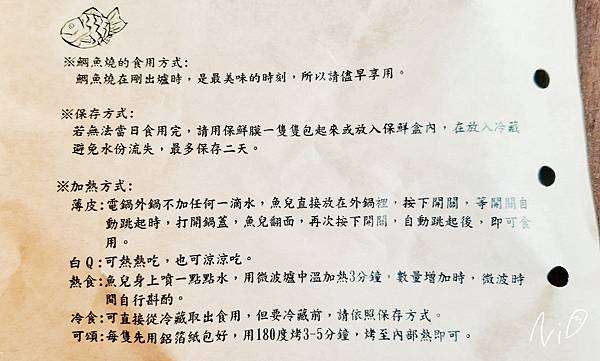 ※鯛魚燒的食用方式:
鯛魚燒在剛出爐時，是最美味的時刻，所以請儘早享用。
※保存方式:
若無法當日食用完，請用保鮮膜一隻隻包起來或放入保鮮盒內，在放入冷藏
避免水份流失，最多保存二天。
※加熱方式:
薄皮:電鍋外鍋不加任何一滴水，魚兒直接放在外鍋裡，按下開關，等開關自
動跳起時，打開鍋蓋，魚兒翻面，再次按下開關，自動跳起後，即可食
用。
白Q:可熱熱吃，也可涼涼吃。
熱食:魚兒身上噴一點點水，用微波爐中溫加熱3分鐘，數量增加時，微波時
間自行斟酌。
冷食:可直接從冷藏取出食用，但要冷藏前，請依照保存方式。
可頌:每隻先用鋁箔紙包好，用180度烤3-5分鐘，烤至內部熱即可。